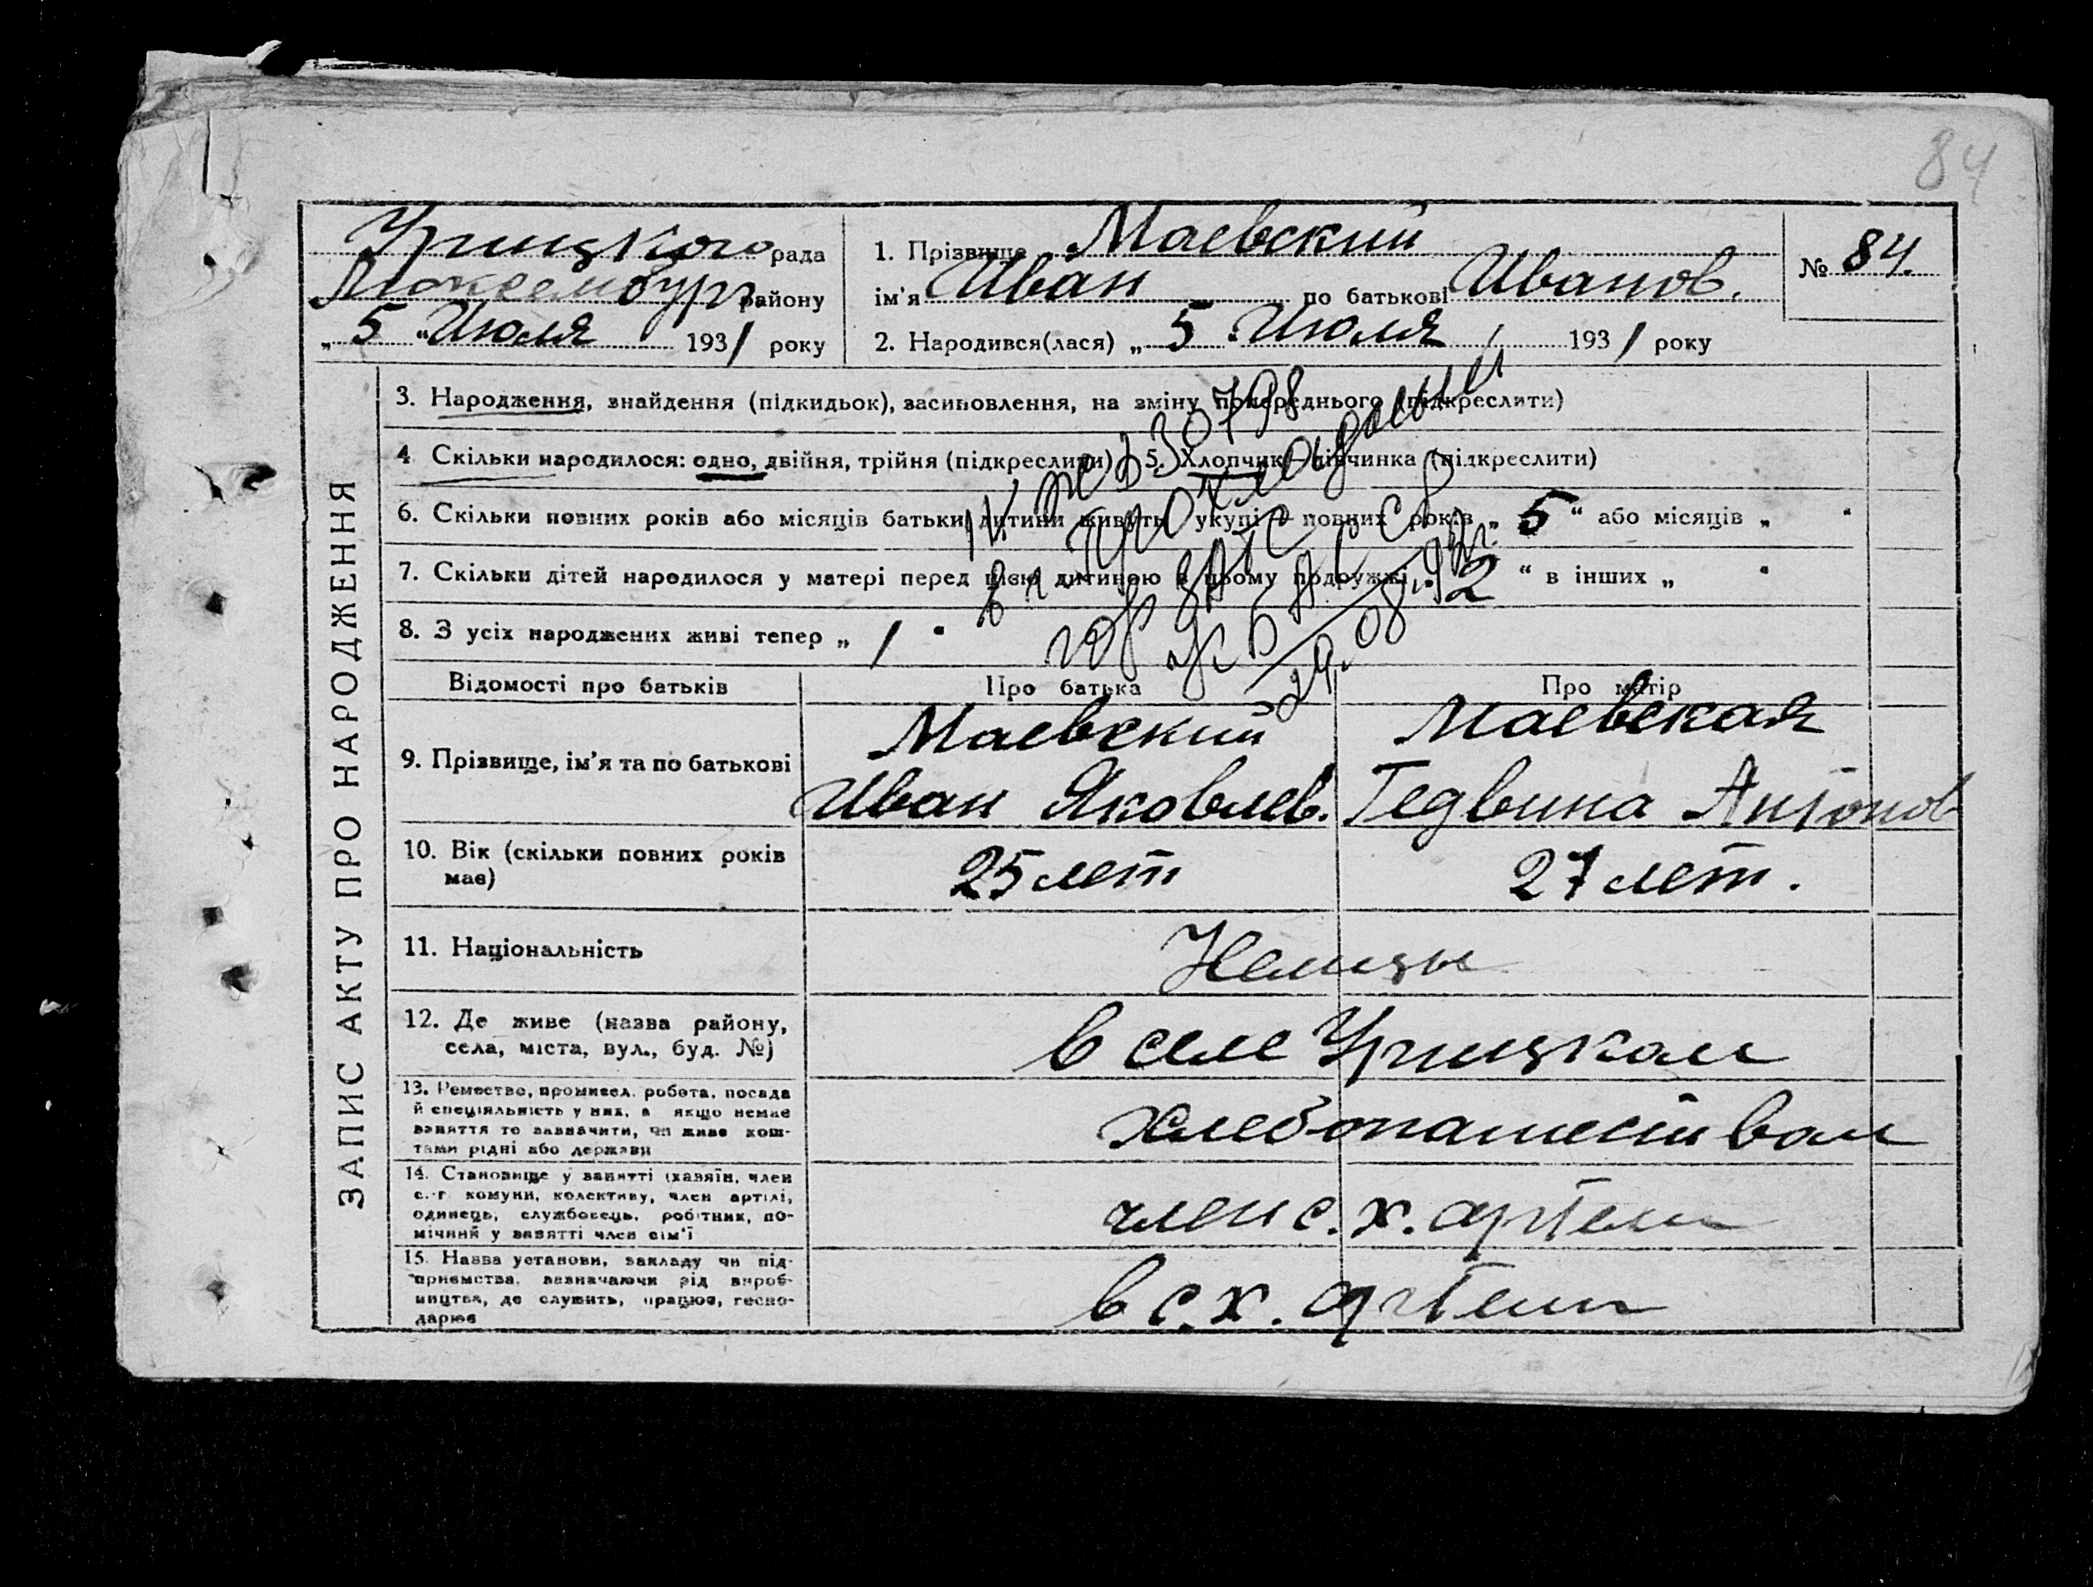 84
Урицкого рада
Люксембург району
„ 5 “ Июля 1931 року
1. Прізвище Маевский
ім’я Иван по батькові Иванов.
2. Народився(лася) „ 5 Июля 1931 року
№ 84.
ЗАПИС АКТУ ПРО НАРОДЖЕННЯ
3. Народження, знайдення (підкидьок), засиновлення, на зміну попереднього (підкреслити)
4. Скільки народилося: одно, двійня, трійня (підкреслити) 5. Хлопчик – дівчинка (підкреслити)
6. Скільки повних років або місяців батьки дитини живуть укупі – повних років „ 5 “ або місяців „ “
7. Скільки дітей народилося у матері перед цією дитиною в цьому подружжі „ 2 “ в інших „ “
8. З усіх народжених живі тепер „ 1 “
29.08.
Відомості про батьків Про батька Про матір
9. Прізвище, ім’я та по батькові
Маевский
Иван Яковлев.
Маевская
Гедвина Антонов
10. Вік (скільки повних років
має)
25 лет
27 лет.
11. Національність
Немцы
12. Де живе (назва району,
села, міста, вул., буд. №)
в селе Урицком
13. Ремество, промисел, робота, посада
й спеціяльність у них, а якщо немає
заняття то зазначити, чи живе кош-
тами рідні або держави
хлебопашеством
14. Становище у занятті (хазяїн, член
с.-г. комуни, колективу, член артілі,
одинець, службовець, робітник, по-
мічний у занятті член сім’ї
член с. х. артели
15. Назва установи, закладу чи під-
приємства, зазначаючи рід вироб-
ництва, де служить, працює, госпо-
дарює
в с. х. артели